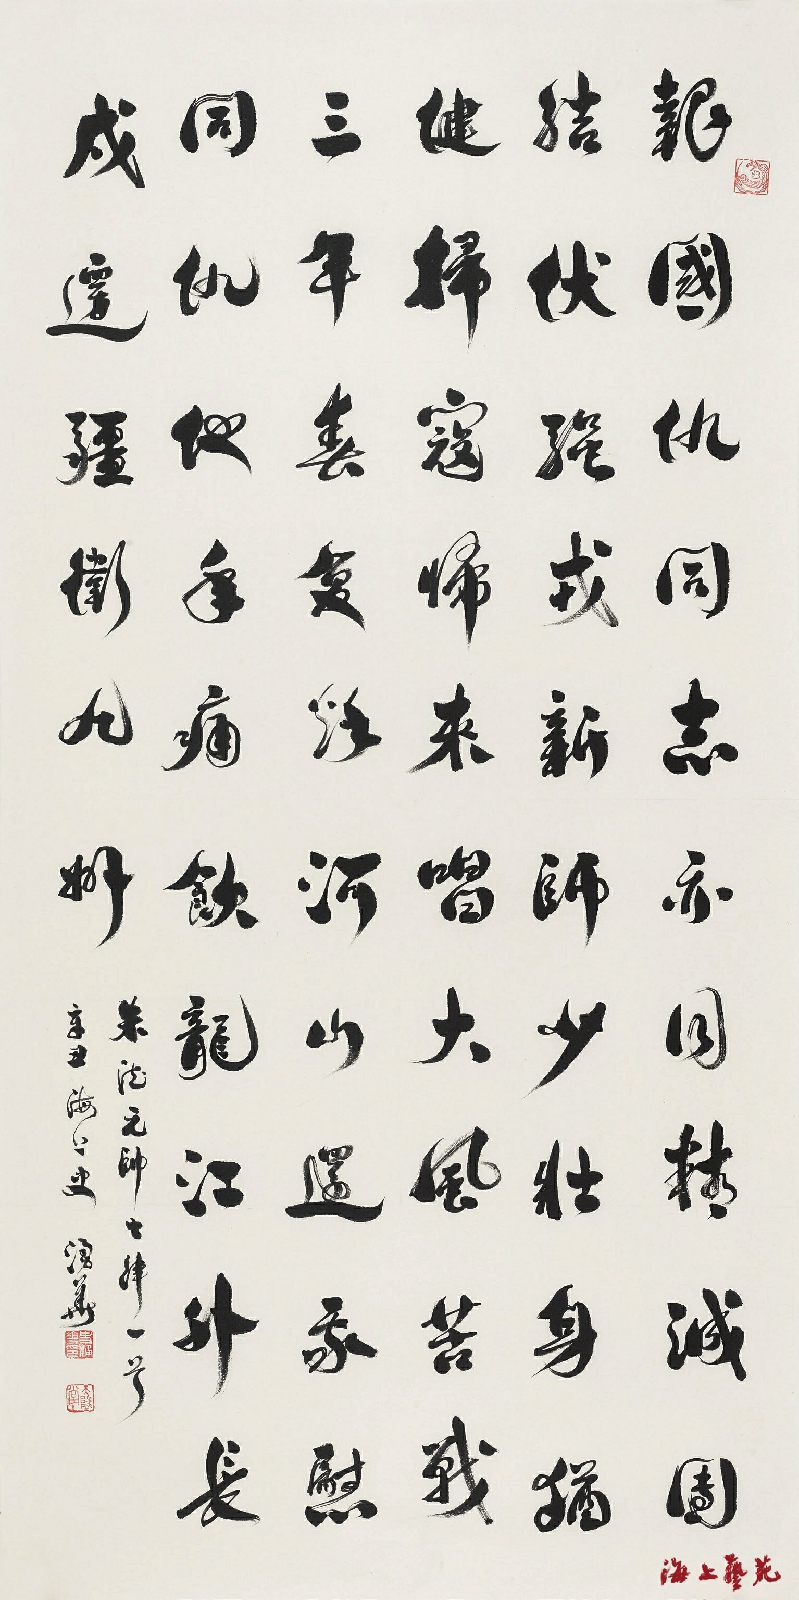 報國仇同志亦同精誠團
結伏強戎新師少壯身猶
健掃寇歸來唱大風苦戰
三年春复秋河山還我慰
同仇他年痛飲龍江外長
戍邊疆衛九州
朱德元帥七律一首
辛丑海上史華
海上藝苑